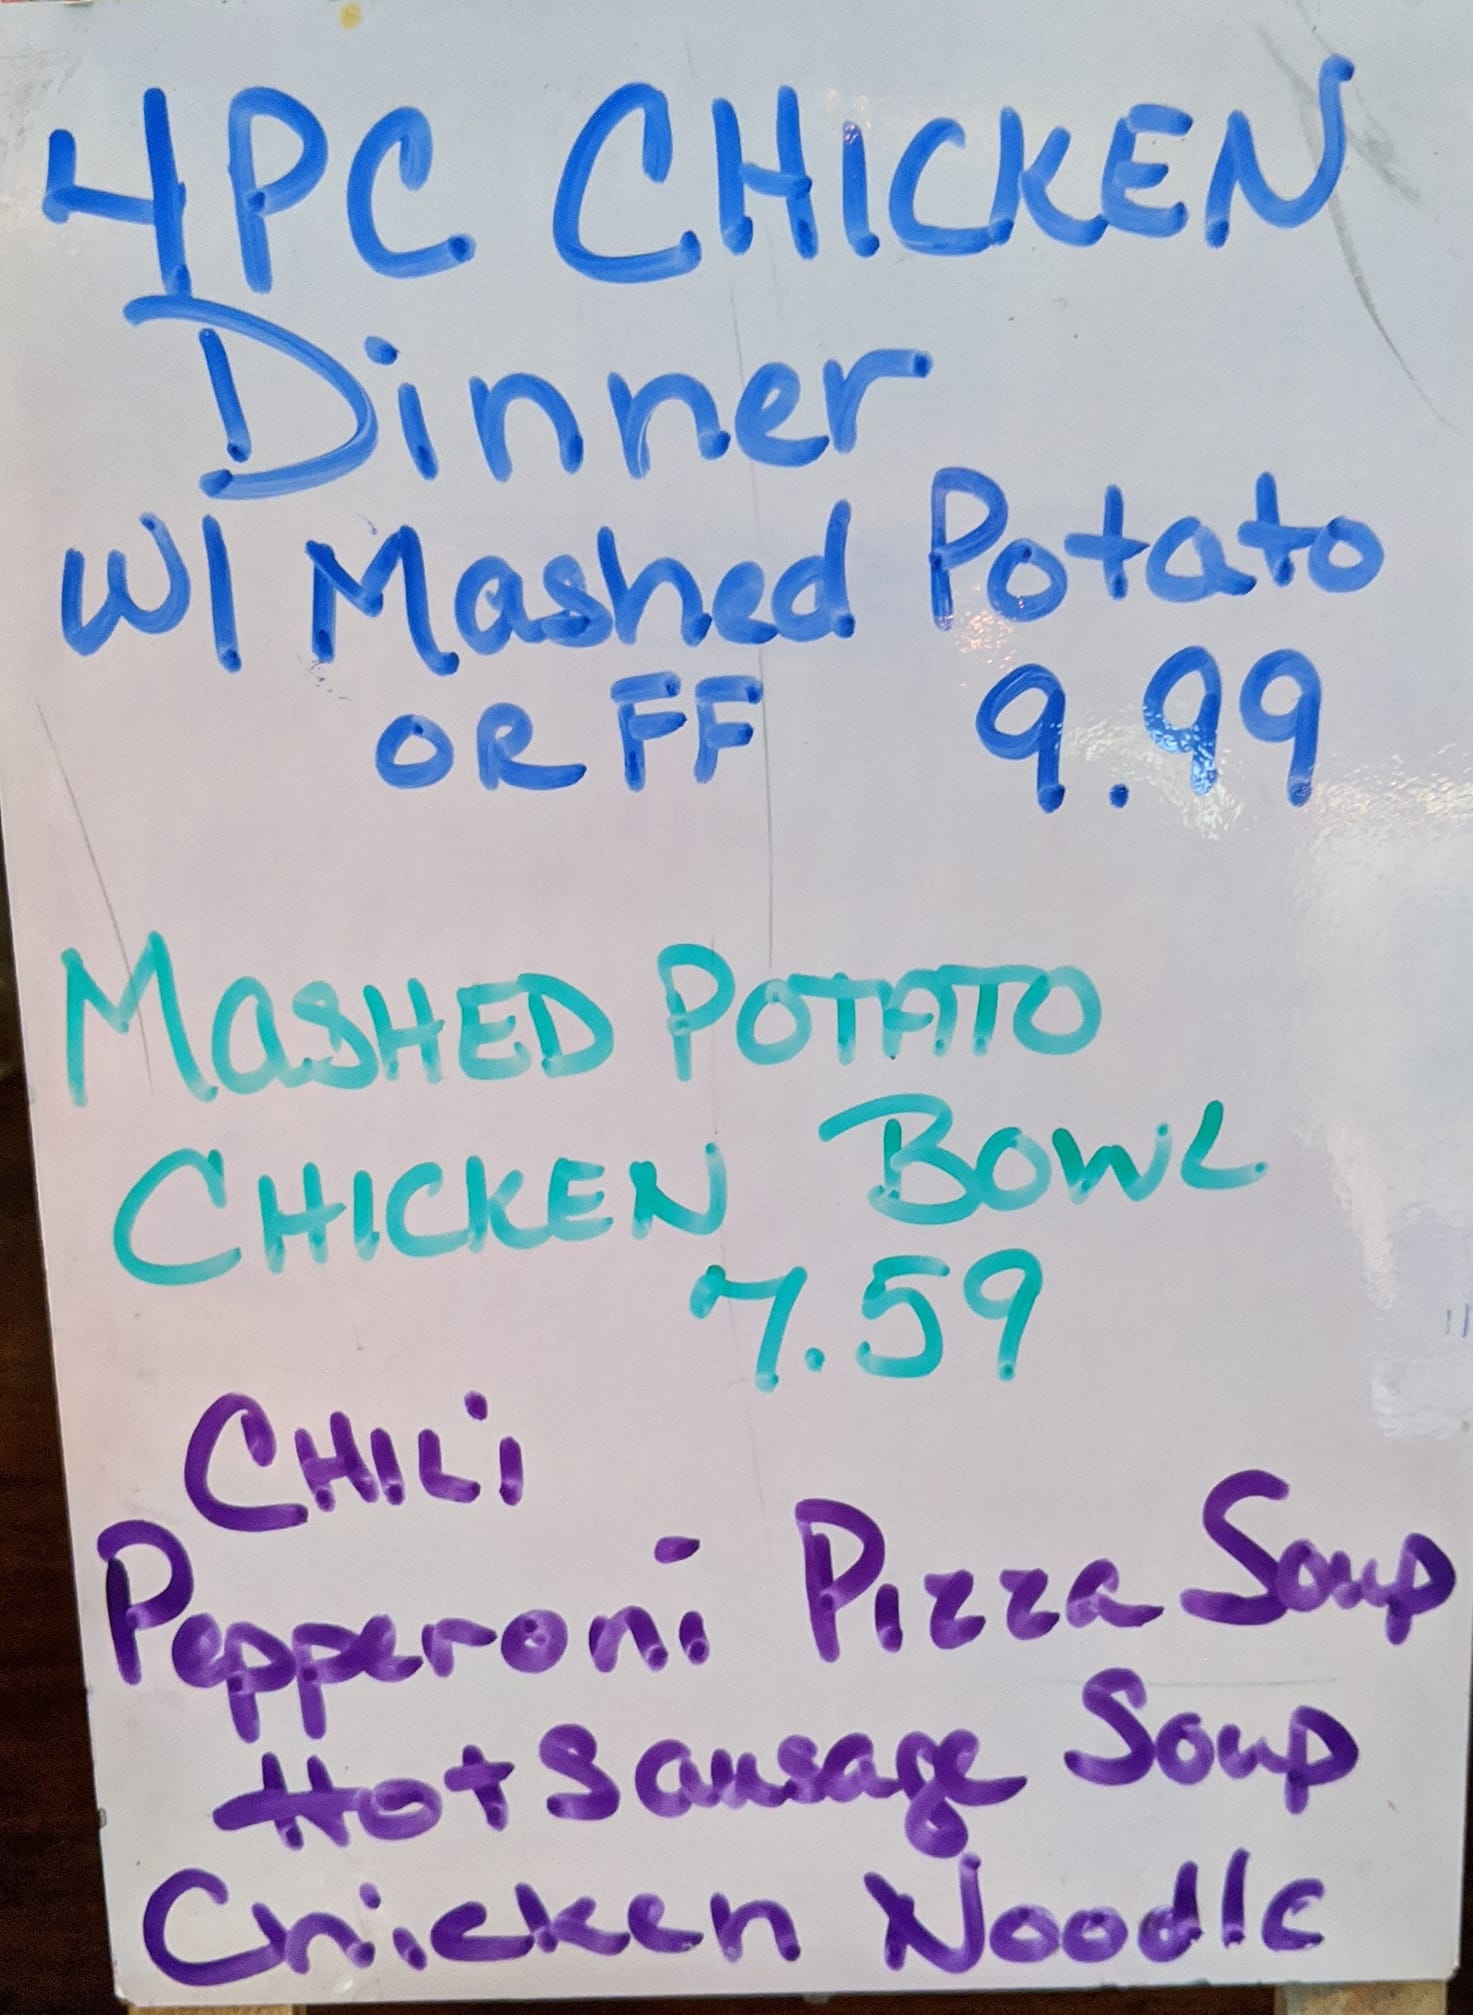 4PC CHICKEN
Dinner
W/ Mashed Potato
OR FF 9.99
MASHED POTATO
CHICKEN BOWL
7.59
CHILi
Pepperoni Pizza Soup
Hot Sausage Soup
Chicken Noodle